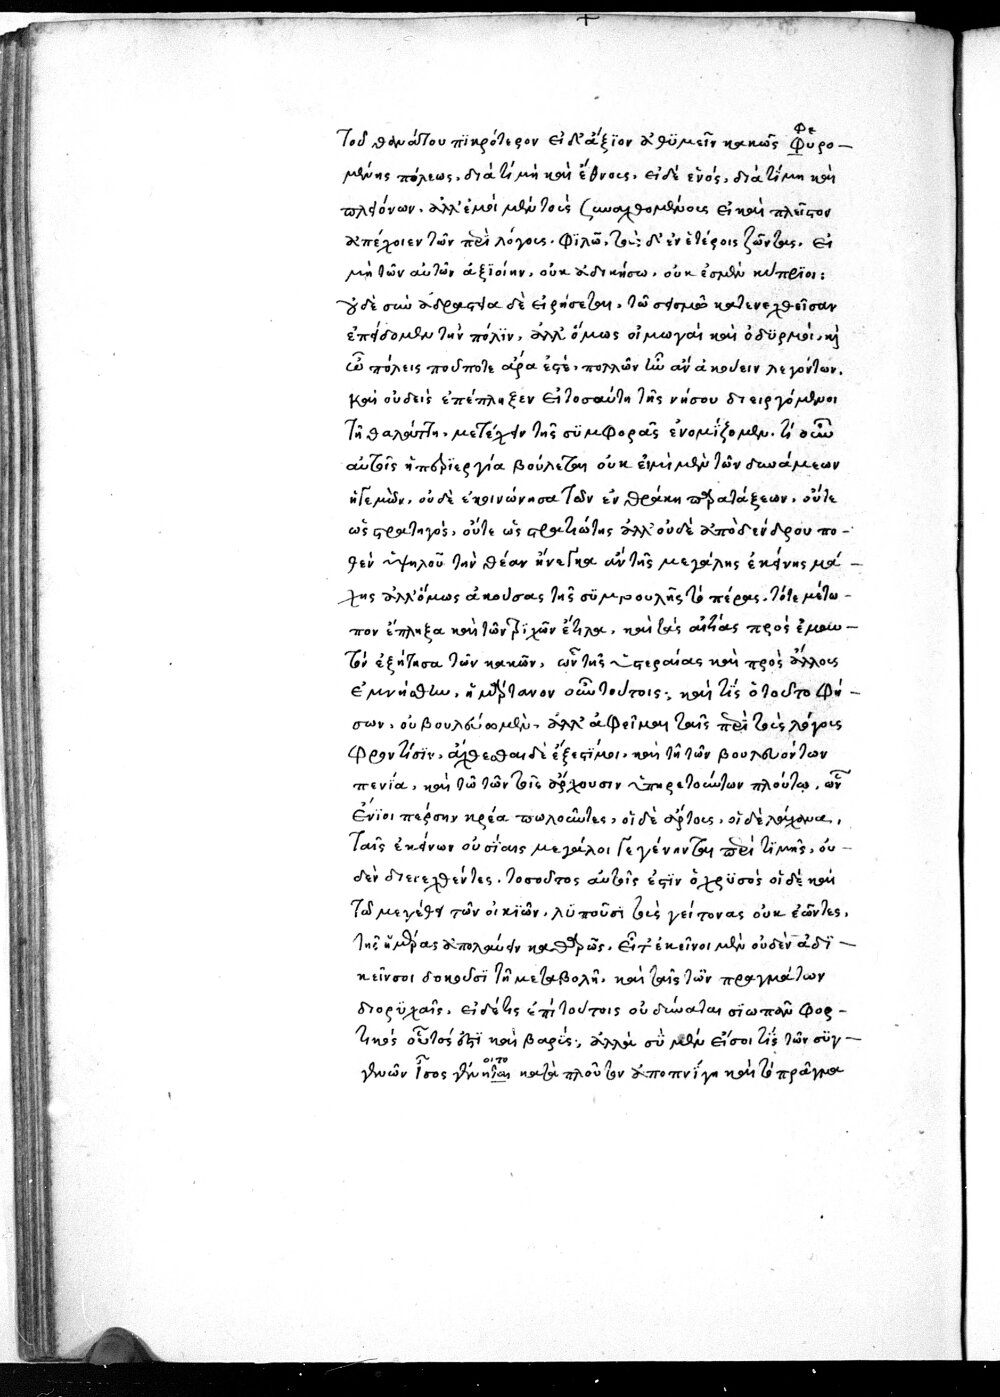 τοῦ θανάτου πϊκρότερον εἰ δ' ἄξϊον ἀθϋμεῖν κακῶς φυρο-
φε
μένης πόλεως, διὰ τί μὴ καὶ ἔθνους, εἰ δὲ ἑνός, διὰ τί μὴ καὶ
πλειόνων. ἀλλ' ἐμοὶ μὲν τοῖς συναχθομένοις εἰ καὶ πλεῖστον
ἀπέχοιεν τῶν περὶ λόγοις. φϊλῶ, τοὺς δ' ἐν ἑτέροις ζῶντας, εἰ
μὴ τῶν αὐτῶν ἀξϊοίην, οὐκ ἀδικήσω, οὐκ ἐσμὲν κύπρϊοι:
δὲ εἰρήσεται, τῶ σεισμῶ κατενεχθεῖσαν
ἐπείδομεν τὴν πόλϊν, ἀλλ' ὅμως οἰμωγαὶ καὶ ὀδϋρμοί, καὶ
ὦ πόλεις ποῦ ποτε ἄρα ἐστέ, πολλῶν ἦν ἂν ἀκούειν λεγόντων.
καὶ οὐδεὶς ἐπέπληξεν εἰ τοσαύτη τῆς νήσου διειργόμενοι
τῆ θαλάττη, μετέχειν τῆς σϋμφορᾶς ἐνομΐζομεν. τί οὖν
αὐτοῖς ἡ περϊεργία βούλεται οὐκ ἐμὴ μὲν τῶν δυνάμεων
ἡγεμών, οὐδὲ ἐκοινώνησα τῶν ἐν θράκη παρατάξεων, οὔτε
ὡς στρατηγός, οὔτε ὡς στρατιώτης ἀλλ' οὐδὲ ἀπὸ δένδρου πο-
θὲν ὑψηλοῦ τὴν θέαν ἤνεγκα ἂν τῆς μεγάλης ἐκείνης μά-
χης ἀλλ' ὅμως ἀκούσας τῆς σϋμβουλῆς τὸ πέρας, τό τε μέτω-
πον ἔπληξα καὶ τῶν τρϊχῶν ἔτιλα, καὶ τὰς αἰτίας πρὸς ἐμαυ-
τὸν ἐξήτησα τῶν κακῶν, ὧν τῆς ὑστεραίας καὶ πρὸς ἄλλους
ἐμνήσθην, ἡμάρτανον οὖν τούτοις; καὶ τίς ὁ τοῦτο φή-
σων, οὐ βουλεύομεν, ἀλλ' ἀφεῖμαι ταῖς περὶ τοὺς λόγους
φροντίσϊν, ἄχθεσθαι δὲ ἔξεστί μοι, καὶ τῆ τῶν βουλευόντων
πενία, καὶ τῶ τῶν τοῖς ἄρχουσιν ὑπηρετούντων πλούτω, ὧν
ἔνϊοι πέρσην κρέα πωλοῦντες, οἱ δὲ ἄρτους, οἱ δὲ λάχανα,
ταῖς ἐκείνων οὐσίαις μεγάλοι γεγένηνται περὶ τϊμῆς, οὐ-
δὲν διενεχθέντες. τοσοῦτος αὐτοῖς ἐστϊν ὁ χρϋσός οἱ δὲ καὶ
τῶ μεγέθει τῶν οἰκϊῶν, λϋποῦσϊ τοὺς γείτονας οὐκ ἐῶντες,
τῆς ἡμέρας ἀπολαύειν καθαρῶς. εἶτ' ἐκεῖνοι μὲν οὐδὲν ἀδϊ-
κεῖν σοι δοκοῦσϊ τῆ μεταβολῆ, καὶ ταῖς τῶν πραγμάτων
διορϋχαῖς, εἰ δέ τις ἐπὶ τούτοις οὐ δύναται σϊωπᾶν φορ-
τικὸς οὗτός ἐστϊ καὶ βαρύς; ἀλλὰ σὺ μὲν εἴ σοι τϊς τῶν σϋγ-
γενῶν
οιτο
κατὰ πλοῦτον ἀποπνίγη καὶ τὸ πρᾶγμα